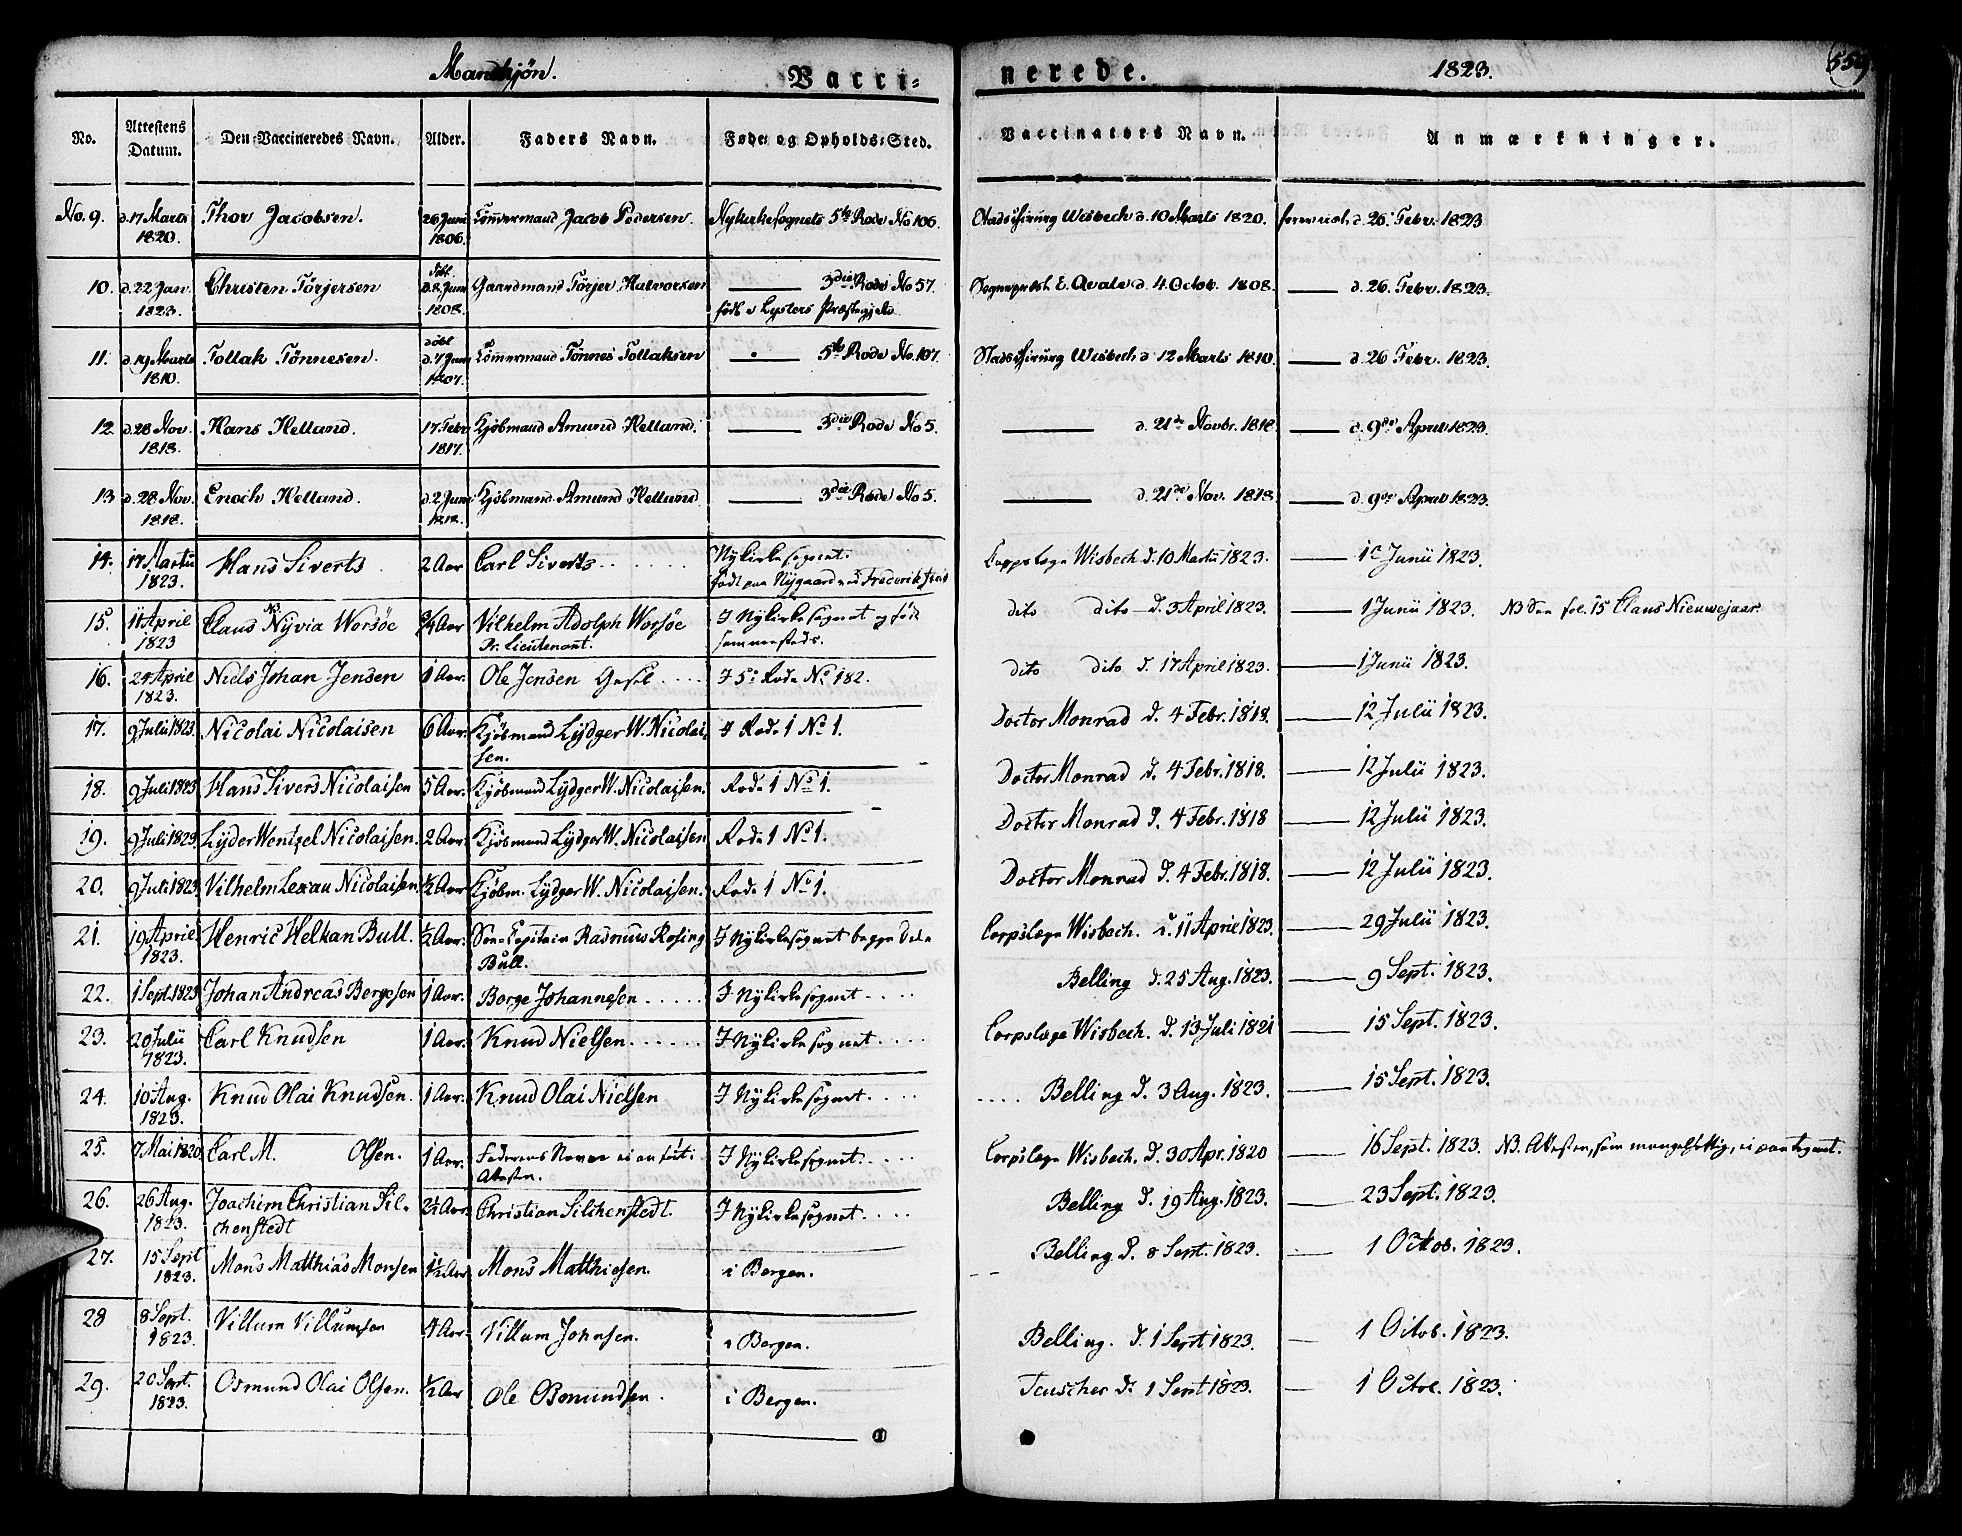 Mandkjön. Vacci- nerede. 1823. 559
No. Attestens Datum. Den Vaccineredes Navn. Alder. Faders Navn. Føde- og Opholds-Sted. Vaccinators Navn. Anmærkninger.
No. 9. d. 17 Marts 1820. Thor Jacobsen. 26 Juni 1806. Tömmermand Jacob Pedersen. Nykirkesognets 5te Rode No 106. Stadschirurg Wisbech d. 10 Marts 1820. d. 26. Febr. 1823
10. d. 22 Jan. 1823. Christen Törjersen döbt d. 8. Juni 1808. Gaardmand Törjer Halvorsen ——— 3die Rode No 57. födt i Lysters Præstegield. E. Qvale d. 4. Octob. 1808. —— d. 26. Febr. 1823.
11. d. 19 Marts 1810. Tollak Tönnesen. döbt d. 7 Juni 1807. Tömmermand Tönnes Tollaksen ——— 5te Rode No. 107. Stadschirurg Wisbech d 12 Marts 1810. —— d. 26 Febr. 1823.
12. d. 28 Nov. 1818. Hans Helland. 17. Febr 1817. Kjöbmand Amund Helland. ——— 3die Rode No 5. ——— d. 21de Novbr. 1818 —— d. 9de April 1823.
13 d. 28 Nov. 1818. Enoch Helland. d. 2 Juni 1818. Kjöbmand Amund Helland ——— 3die Rode No 5. ——— d. 21de Nov. 1818 —— d. 9de April 1823.
14. 17 Martii 1823. Hans Siverts. 2 Aar Carl Siverts Nykirkesognet. födt paa Nygaard ved Wisbech d. 10 Martii 1823. —— Junii 1823.
15. 11 April 1823 Claus NB. Nyvia Worsöe 3/4 Aar Vilhelm Adolph Worsöe Pr. Lieutenant. I Nykirkesognet og föd sammesteds. dito dito d. 3 April 1823. —— 1 Junii 1823. NB Claus Nieuwejaar.
16. 24 April 1823. Niels Johan Jensen 1 Aar. Ole Jensen I 5te Rode No 182. dito dito d. 17 April 1823. —— 1 Junii 1823.
17. 9 Julii 1823. Nicolai Nicolaisen 6 Aar. Kjöbmand Lydger W. Nicolaisen. I Rode 1 No 1. Doctor Monrad d. 4 Febr. 1818. —— 12 Julii 1823.
18. 9 Juli 1823 Hans Sivers Nicolaisen 5 Aar. Kjöbmand Lydger W. Nicolaisen. Rode 1 No 1. Doctor Monrad d. 4 Febr. 1818. —— 12 Julii 1823.
19. 9 Juli 1823. Lyder Wentzel Nicolaisen. 2 Aar. Kjöbmand Lydger W. Nicolaisen Rode 1 No 1. Doctor Monrad d. 4 Febr. 1818 —— 12 Julii 1823.
20. 9 Juli 1823 Vilhelm Lexau Nicolaisen 1/2 Aar Kjöbm. Lydger W. Nicolaisen. Rode 1 No 1. Doctor Monrad d. 4 Febr. 1818. —— 12 Julii 1823.
21. 19 April 1823. Henric Helkan Bull. 1/2 Aar. Söe-Capitain Rasmus Rosing Bull. I Nykirkesognet begge Dele Corpslæge Wisbech. d. 11 April 1823. —— 29 Julii 1823.
22. 1 Sept. 1823 Johan Andreas Bergesen 1 Aar. Börge Johannesen I Nykirkesognet Belling d. 25 Aug. 1823. —— 9 Sept. 1823.
23. 20 Julii 1823. Carl Knudsen 1 Aar. Knud Nielsen I Nykirkesognet Corpslæge Wisbech. d. 13 Juli 1821 —— 15 Sept. 1823.
24. 10 Aug. 1823. Knud Olai Knudsen. 1 Aar. Knud Olai Nielsen I Nykirkesognet Belling d. 3 Aug. 1823. —— 15 Sept. 1823.
25. 7 Mai 1820 Carl M. Olsen. 1 Aar. Faderens Navn ei anfört i Attesten. I Nykirkesognet Corpslæge Wisbech. d. 30 Apr. 1820 —— 16 Sept. 1823. NB. Attesten, som mangelfuld, ei paategnet.
26. 26 Aug. 1823. Joachim Christian Silchenstedt 2 1/2 Aar. Christian Silchenstedt. I Nykirkesognet Belling d. 19 Aug. 1823. —— 23 Sept. 1823.
27. 15 Sept 1823. Mons Matthias Monsen 1 1/2 Aar. Mons Matthiesen. i Bergen. Belling d. 8 Sept. 1823. —— 1 Octob. 1823.
28 8 Sept. 1823. Villum Villumsen 4 Aar. Villum Johnsen. i Bergen. Belling. d. 1 Sept 1823. — 1 Octob. 1823.
29. 20 Sept. 1823. Osmund Olai Olsen. 1/2 Aar Ole Osmundsen. i Bergen. Teuscher d. 1 Sept 1823. — 1 Octob. 1823.